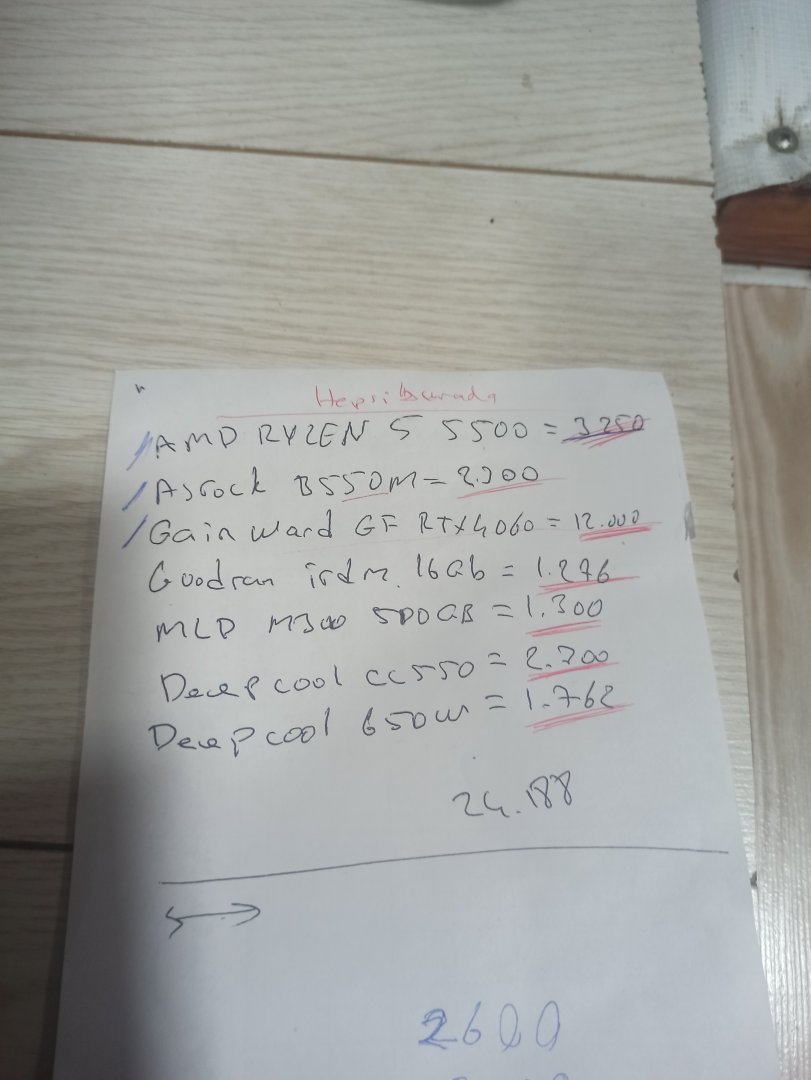 Hepsiburada
AMD RYZEN 5 5500 = 3250
Asrock B550M = 2.300
Gain ward GF RTX4060 = 12.000
Goodram irdm 16Gb = 1.276
MLD M300 500GB = 1.300
Deepcool cc550 = 2.300
Deepcool 650w = 1.762
24.188
2600